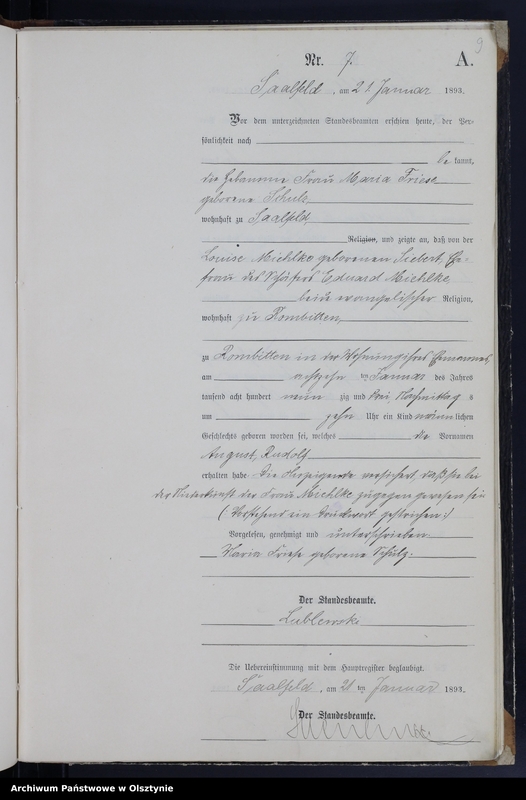 9
Nr. 7. A.
Saalfeld, am 21 Januar 1893.
Vor dem unterzeichneten Standesbeamten erschien heute, der Per-
sönlichkeit nach
be kannt,
die Hebamme Frau Maria Friese
geborene Schulz
wohnhaft zu Saalfeld,
Religion, und zeigte an, daß von der
Louise Michlke geborenen Siebert, Ehe-
frau des Schäfers Eduard Michlke
beide evangelischer Religion,
wohnhaft zu Rombitten,
zu Rombitten in der Wohnung ihres Ehemannes,
am achtzehn ten Januar des Jahres
tausend acht hundert neun zig und drei, Nachmittag s
um zehn Uhr ein Kind männ lichen
Geschlechts geboren worden sei, welches die Vornamen
August, Rudolf
erhalten habe. Die Anzeigende versichert, daß sie bei
der Niederkunft der Frau Michlke zugegen gewesen sei
(Vorstehend ein Druckwort gestrichen:)
Vorgelesen, genehmigt und unterschrieben.
Maria Friese geborene Schulz.
Der Standesbeamte.
Lublewski
Die Uebereinstimmung mit dem Hauptregister beglaubigt.
Saalfeld, am 21 ten Januar 1893.
Der Standesbeamte.
Archiwum Państwowe w Olsztynie